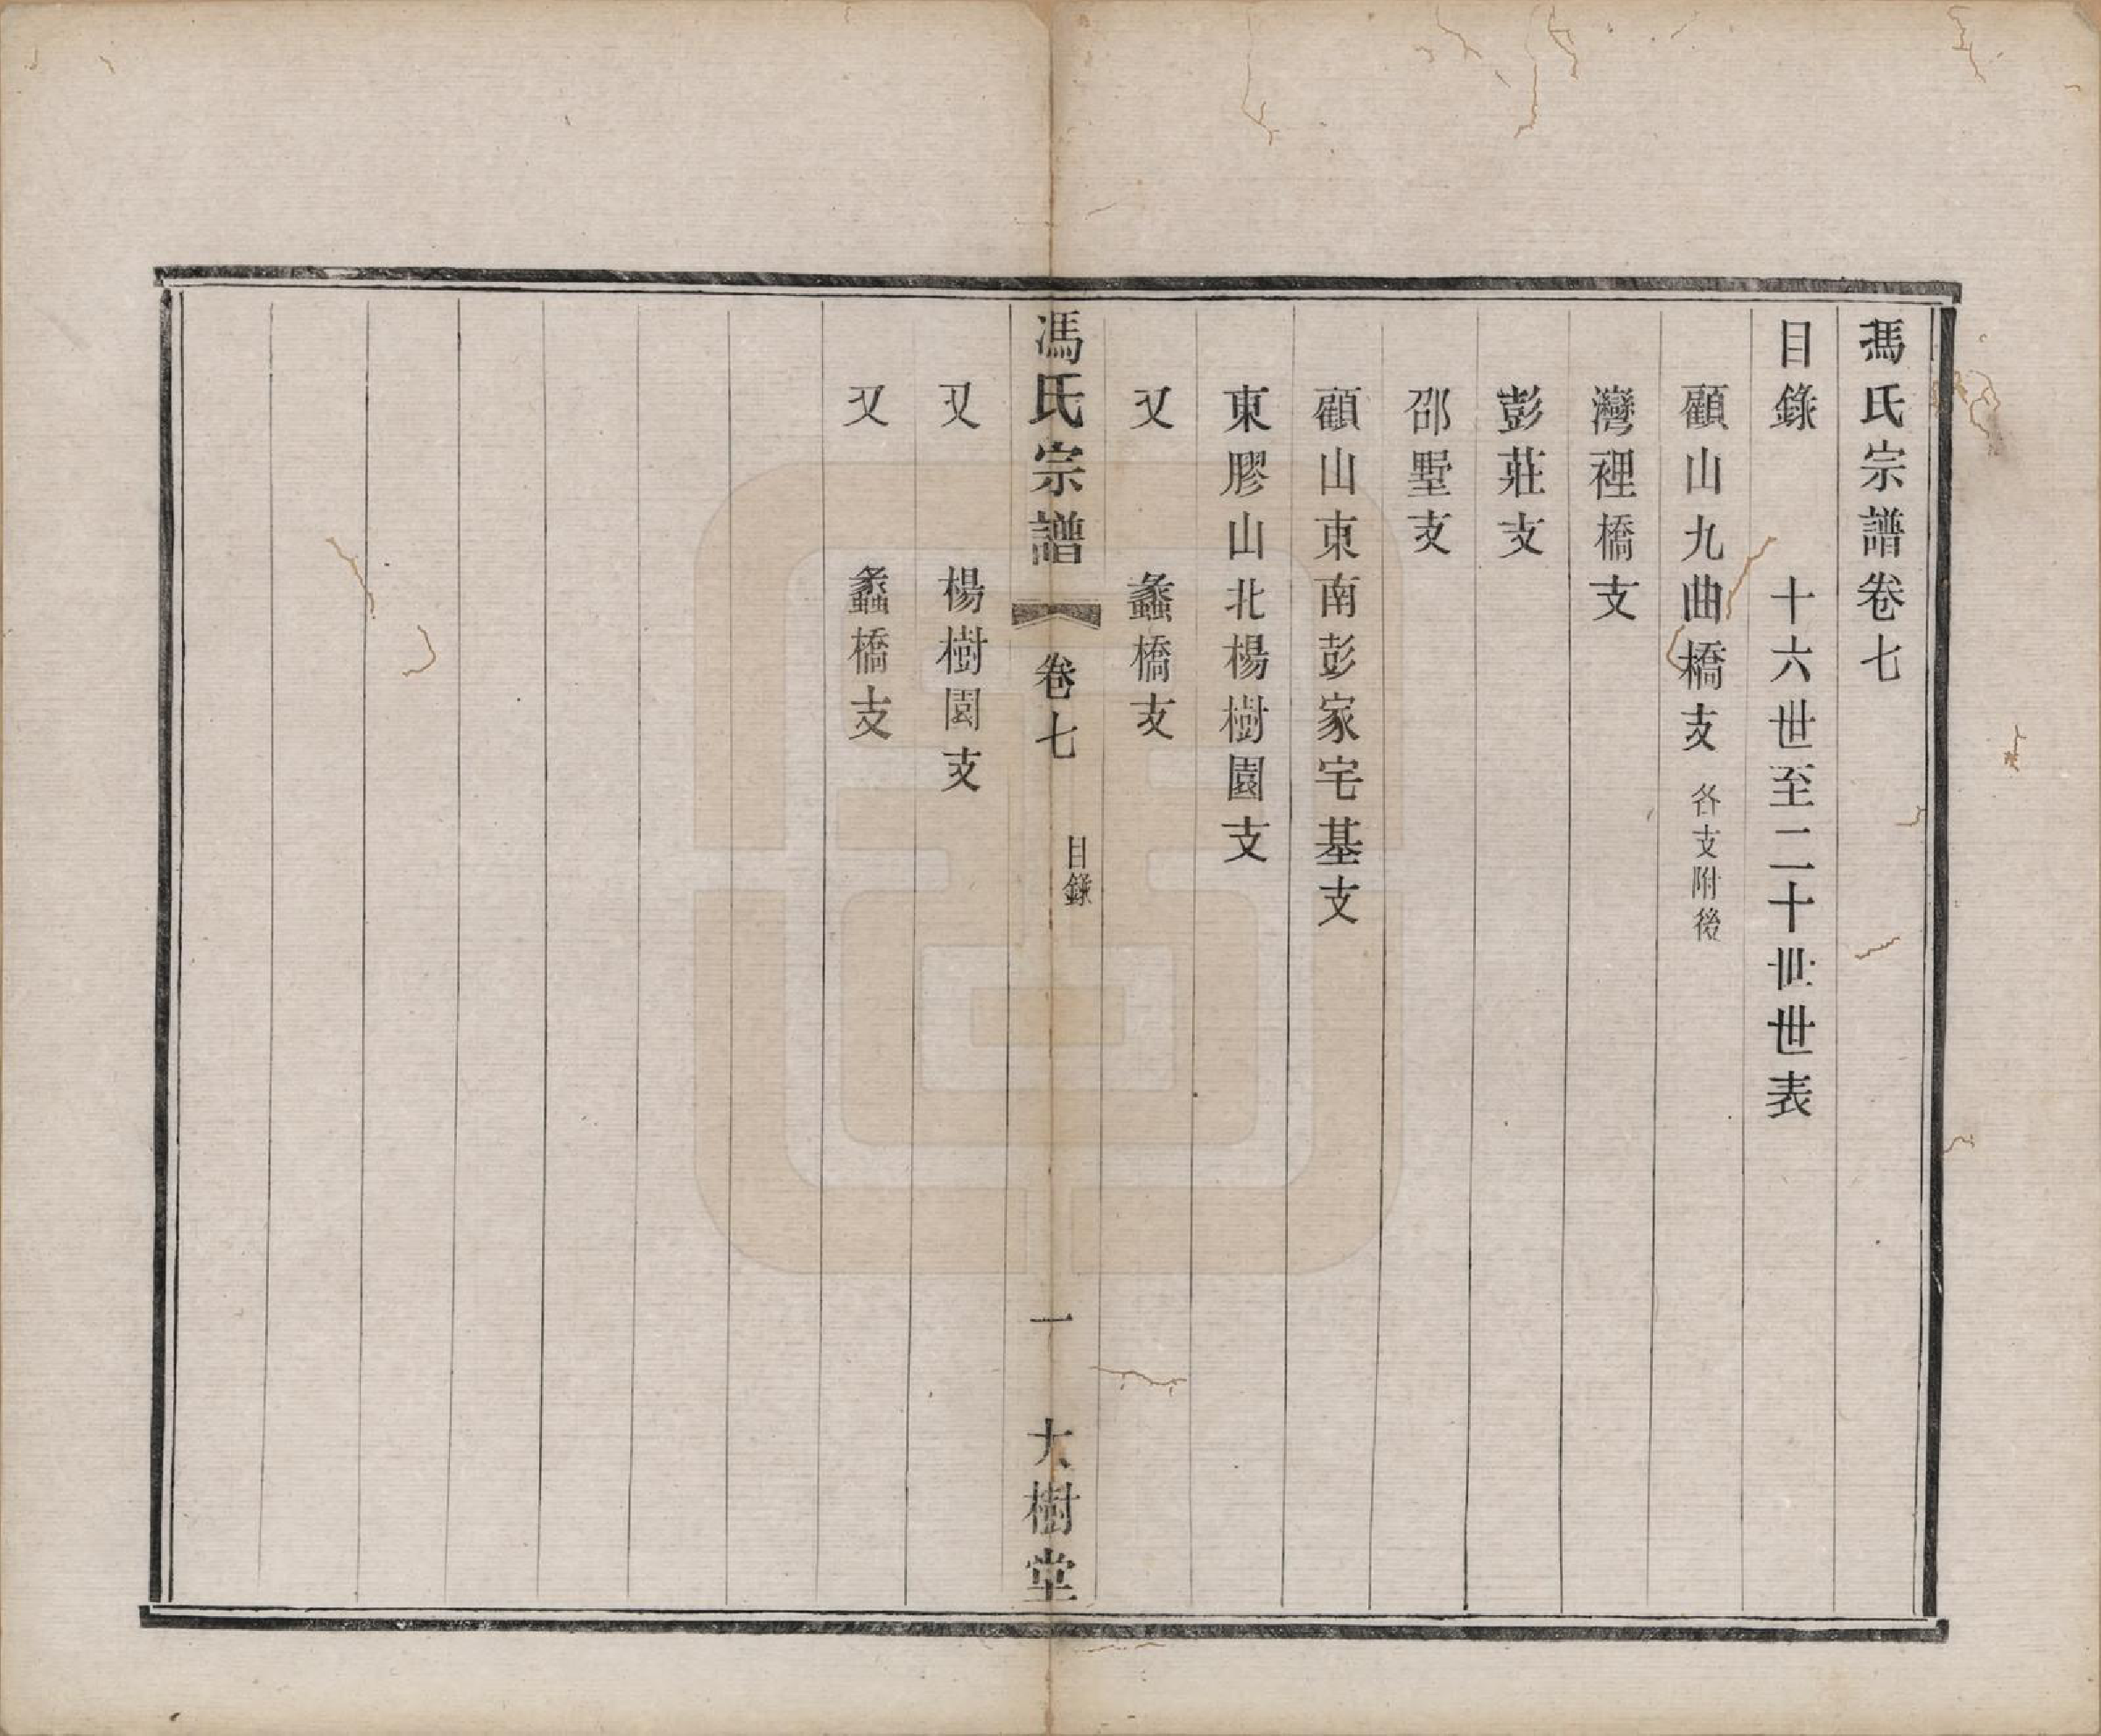 馮氏宗譜卷七
目錄　十六世至二十世世表
顧山九曲橋支 各支附後
灣裡橋支
彭莊支
邵墅支
顧山東南彭家宅基支
東膠山北楊樹園支
又　蠡橋支
馮氏宗譜　卷七　目錄　一　大樹堂
又　楊樹園支
又　蠡橋支